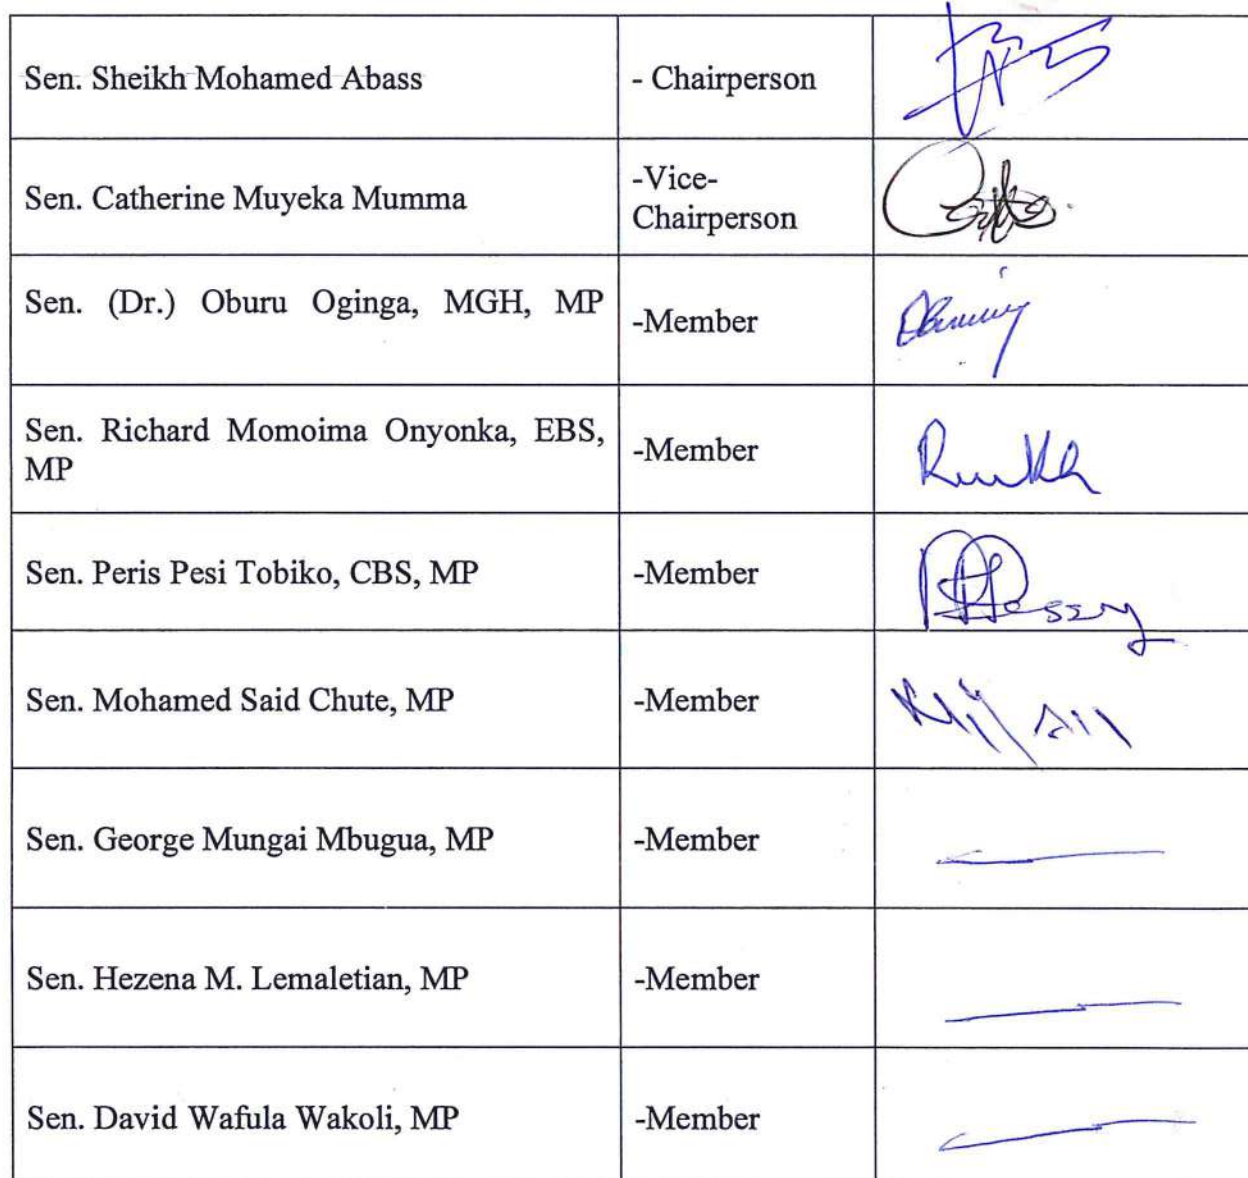 Sen. Sheikh Mohamed Abass
- Chairperson
Sen. Catherine Muyeka Mumma
-Vice-
Chairperson
Sen. (Dr.) Oburu Oginga, MGH, MP
-Member
Sen. Richard Momoima Onyonka, EBS,
MP
-Member
Sen. Peris Pesi Tobiko, CBS, MP
-Member
Sen. Mohamed Said Chute, MP
-Member
Sen. George Mungai Mbugua, MP
-Member
Sen. Hezena M. Lemaletian, MP
-Member
Sen. David Wafula Wakoli, MP
-Member